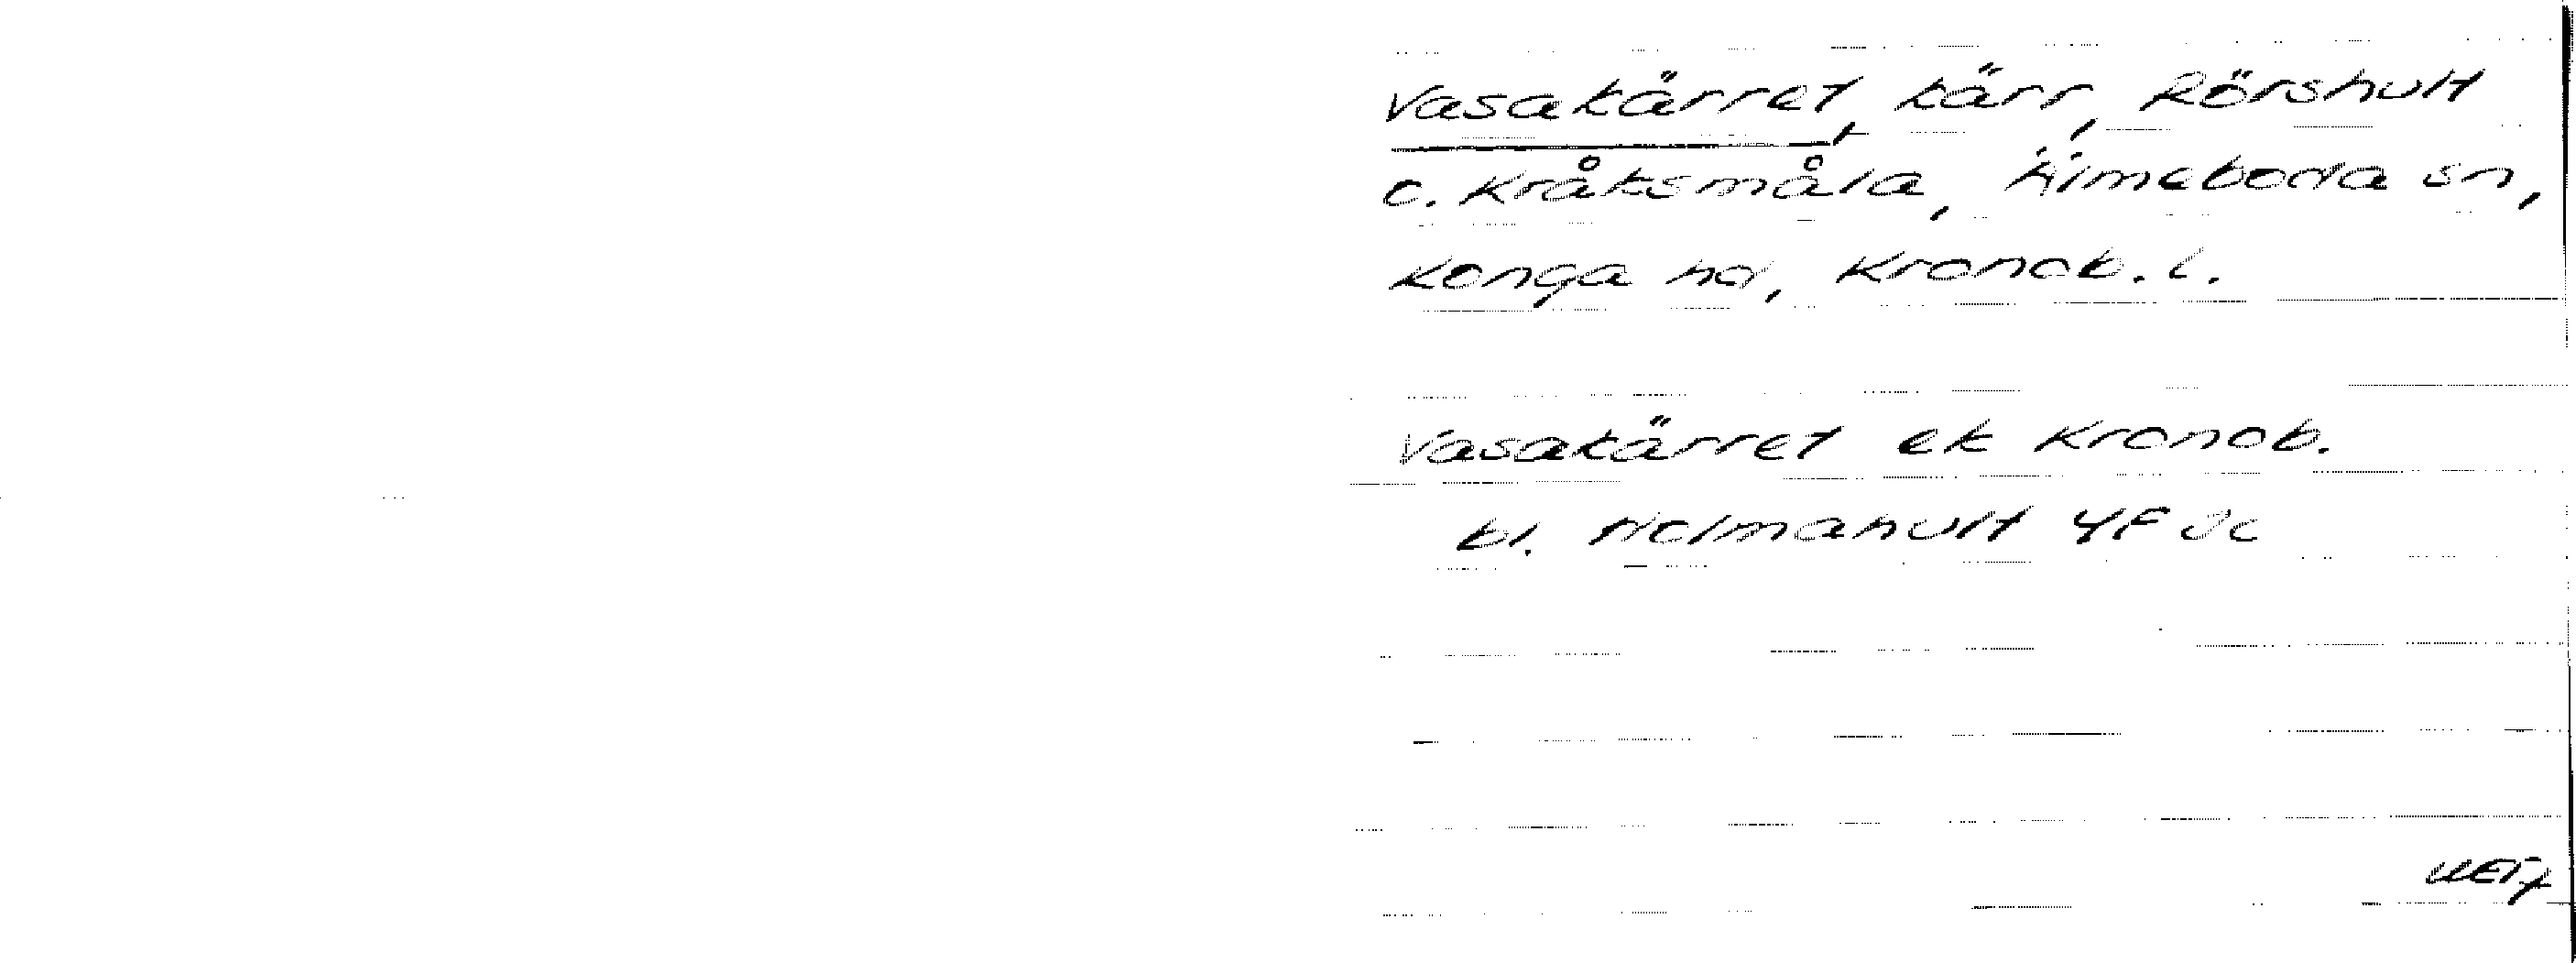 Vasakärret, kärr, Rörshult
o. Kråksmåla, Älmeboda sn,
Konga hd, Kronob. l.
Vasakärret ek Kronob.
bl. Holmahult 4F